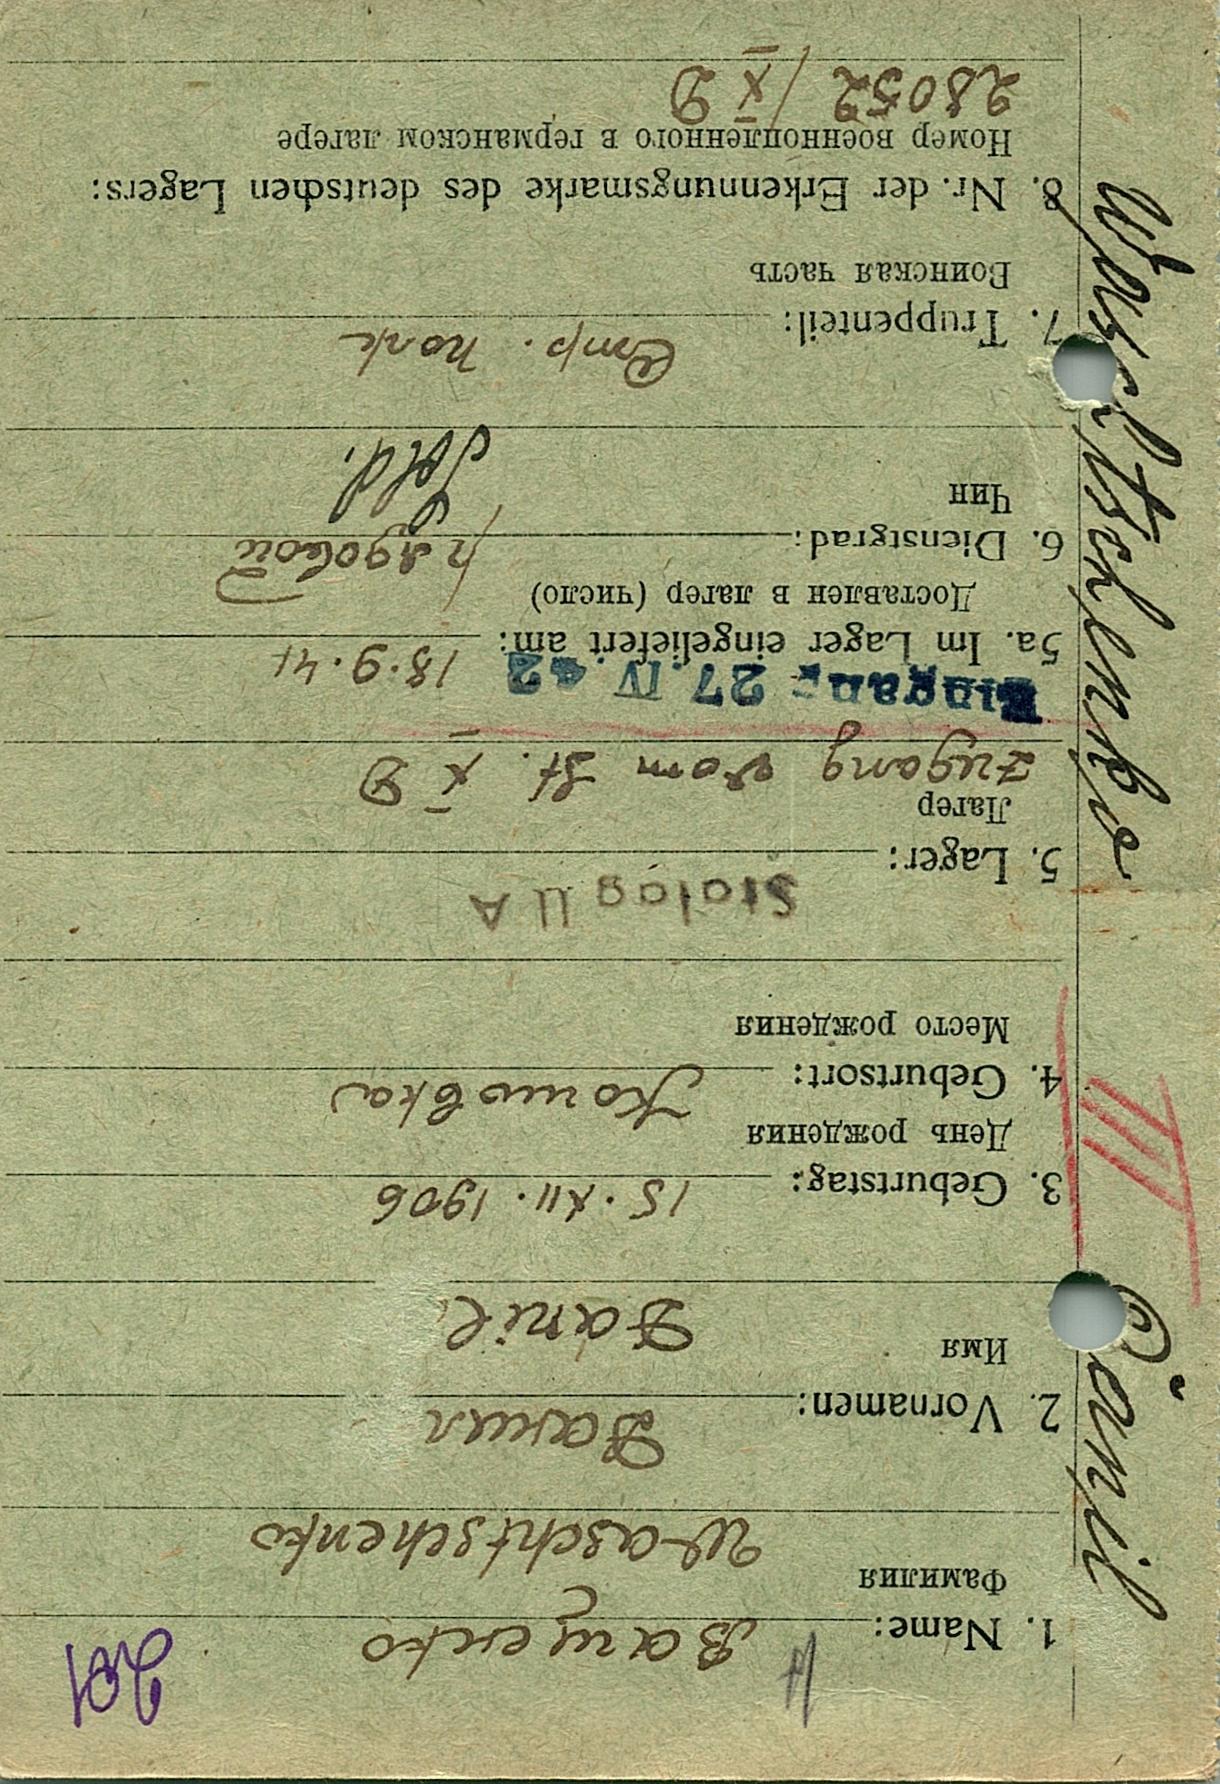 201
1. Name: Ващенко
Фамилия
Waschtschenko
2. Vornamen: Данил
Имя
Danil
3. Geburtstag: 15.XII.1906
День рождения
4. Geburtsort: Комовка
Место рождения
Stalag II A
5. Lager:
Лагер
Zugang vom St. X D
Eingang 27. IV. 42
5a. Im Lager eingeliefert am: 18.9.41
Доставлен в лагер (число)
6. Dienstgrad: рядовой
Чин
Sold.
7. Truppenteil: Стр. полк
Воинская часть
8. Nr. der Erkennungsmarke des deutschen Lagers:
Номер военнопленного в германском лагере
28052 / X D
Waschtschenko Danil
III